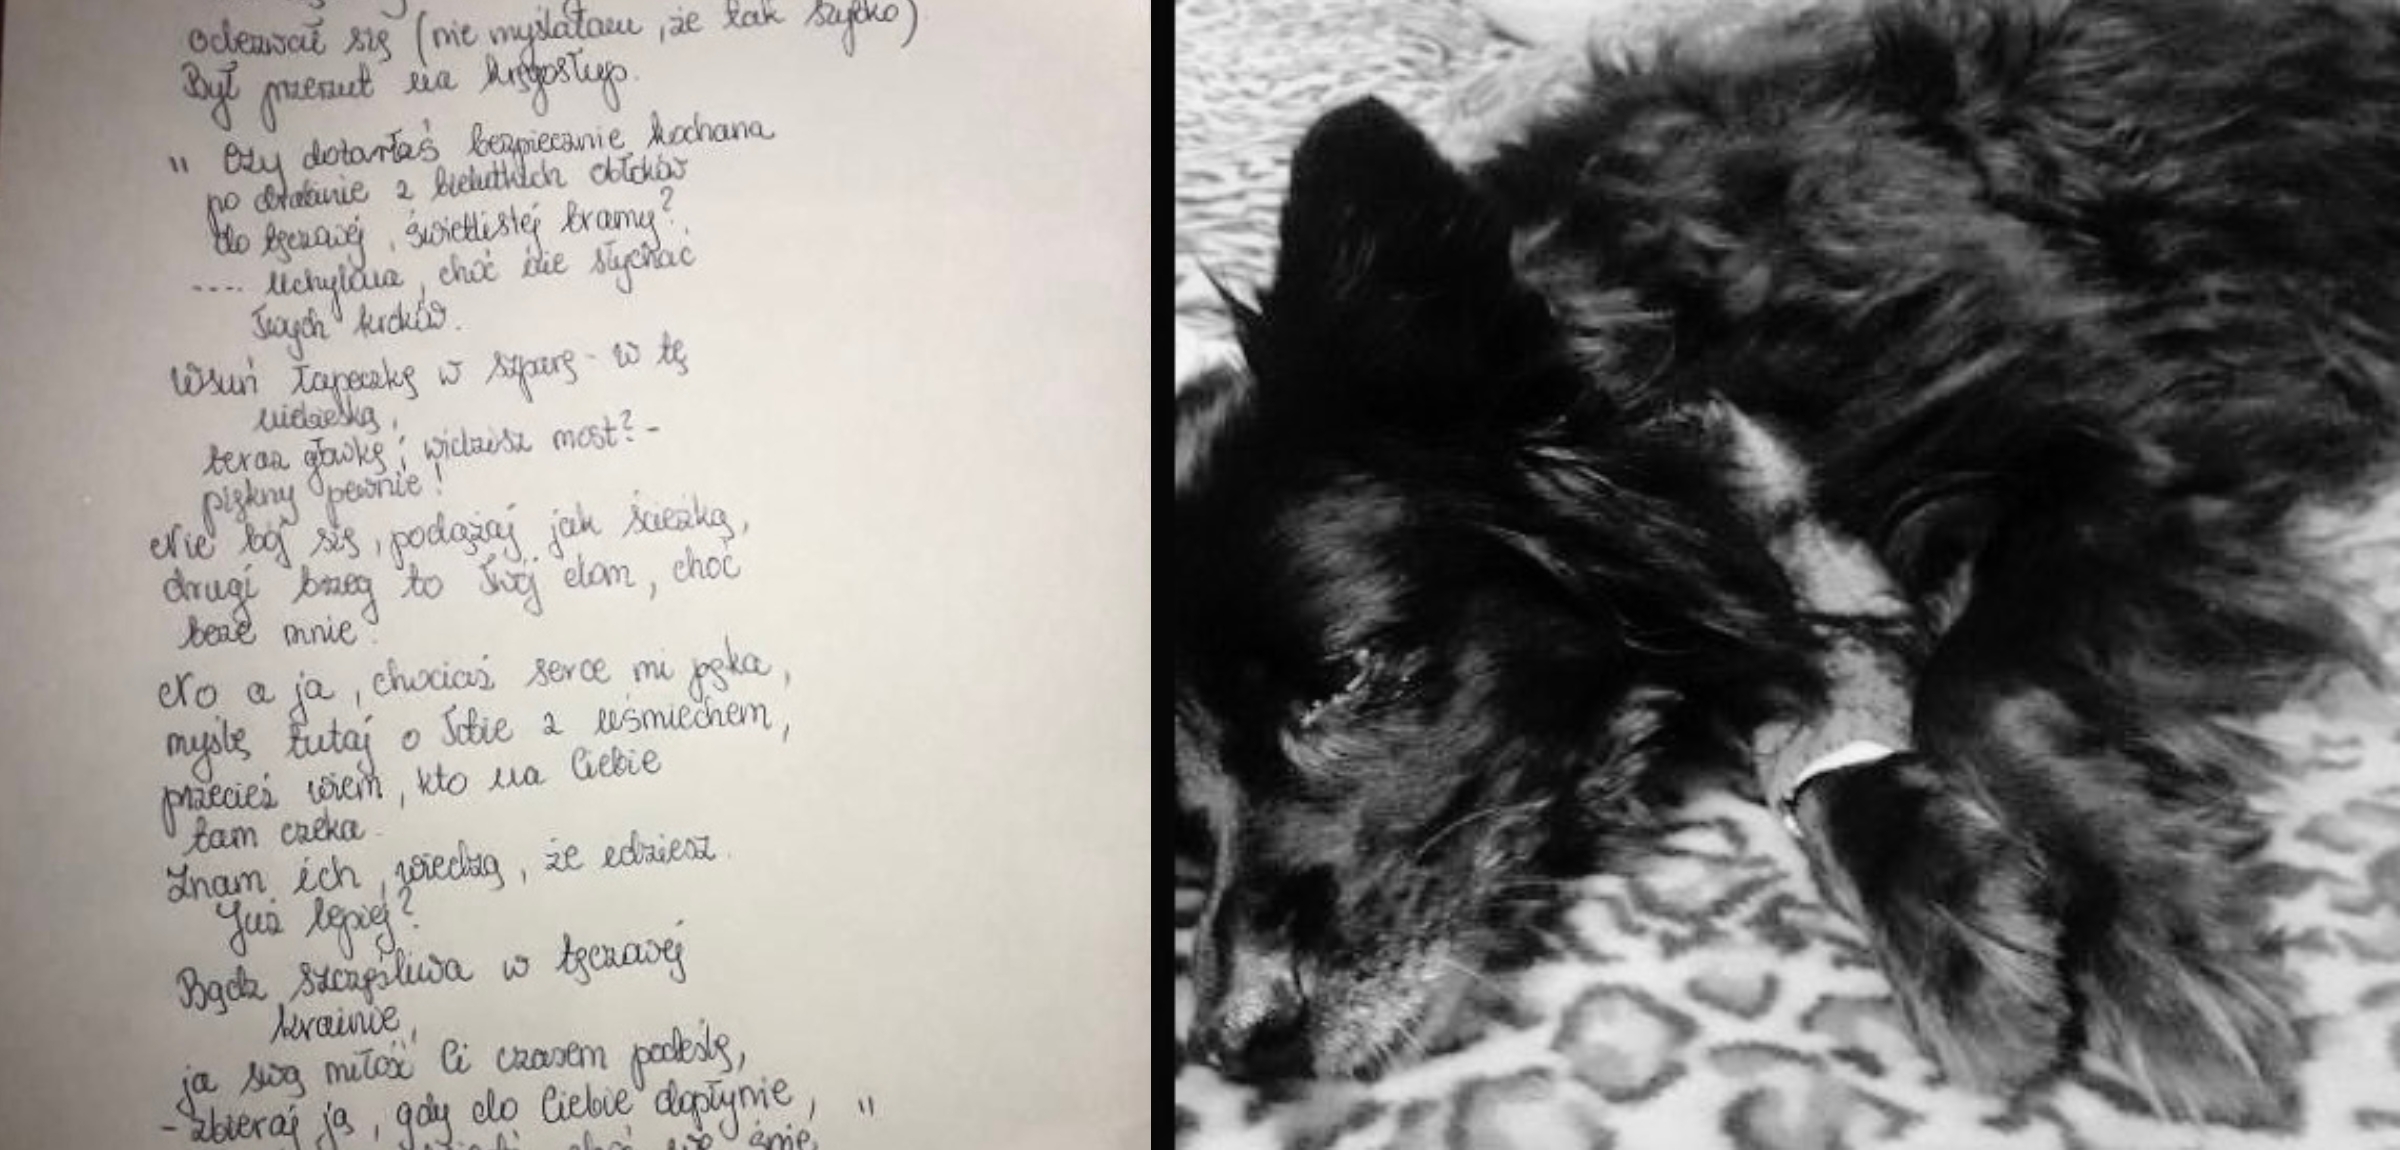 odezwać się (nie myślałam, że tak szybko)
Był przerzut na kręgosłup.
" Czy dotarłaś bezpiecznie kochana
po drabinie z bielutkich obłoków
do tęczowej, świetlistej bramy?
.... Uchylona, choć nie słychać
Twych kroków.
Wsuń łapeczkę w szparę - w tę
niebieską,
teraz główkę; widzisz most? -
piękny pewnie!
Nie bój się, podążaj jak ścieżką,
drugi brzeg to Twój dom, choć
beze mnie.
No a ja, chociaż serce mi pęka,
myślę tutaj o Tobie z uśmiechem,
przecież wiem, kto na Ciebie
tam czeka.
Znam ich, wiedzą, że idziesz.
Już lepiej?
Bądź szczęśliwa w tęczowej
krainie,
ja swą miłość Ci czasem podeślę,
- zbieraj ją, gdy do Ciebie dopłynie, "
choć we śnie.